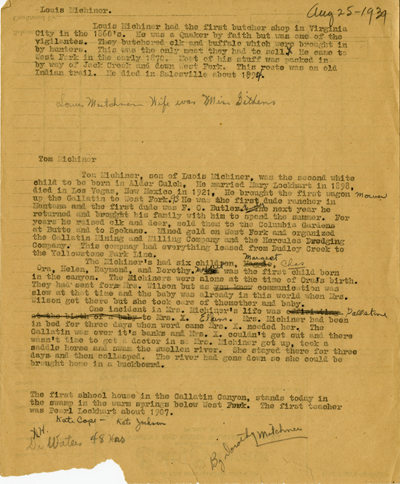 Louis Michiner.
Aug 25-1939
Louis Michiner had the first butcher shop in Virginia
City in the 1860's. He was a Quaker by faith but was one of the
vigilantes. They butchered elk and buffalo which were brought in
by hunters. This was the only meat they had to sell. He came to
West Fork in the early 1870. Most of his stuff was packed in
by way of Jack Creek and down West Fork. This route was an old
Indian trail. He died in Salesville about 1894.
Louis Mitchner Wife was Miss
Tom Michiner
Tom Michiner, son of Louis Michiner, was the second white
child to be born in Alder Gulch. He married Mary Lockhart in 1898,
died in Los Vegas, New Mexico in 1921. He brought the first wagon mower
up the Gallatin to West Fork. He was the first dude rancher in
Montana and the first dude was F. C. Butler. The next year he
returned and brought his family with him to spend the summer. For
years he raised elk and deer, sold them to the Columbia Gardens
at Butte and to Spokane. Mined gold on West Fork and organized
the Gallatin Mining and Milling Company and the Hercules Dredging
Company. This company had everything leased from Dudley Creek to
the Yellowstone Park Line.
The Michiner's had six children, Margaret, Chas
Ora, Helen, Raymond, and Dorothy. was the first born
in the canyon. The Michiners were alone at the time of Ora's birth.
They had sent for Mrs. Wilson but as communication was
slow at that time and the baby was already in this world when Mrs.
Wilson got there but she took care of themother and baby.
One incident in Mrs. Michiner's life was
to Mrs. X. Mrs. Michiner had been
in bed for three days when word came Mrs. X. needed her. The
Gallatin was over it's banks and Mrs. X. couldn't get out and there
wasn't time to get a doctor in so Mrs. Michiner got up, took a
saddle horse and swam the swollen river. She stayed there for three
days and then collasped. The river had gone down so she could be
brought home in a buckboard.
The first shhool house in the Gallatin Canyon, stands today in
the swamp in the warm springs below West Fork. The first teacher
was Pearl Lockhart about 1907.
Kate Cope - Kate Jackson
Waters 48
By Dorothy Mitchner